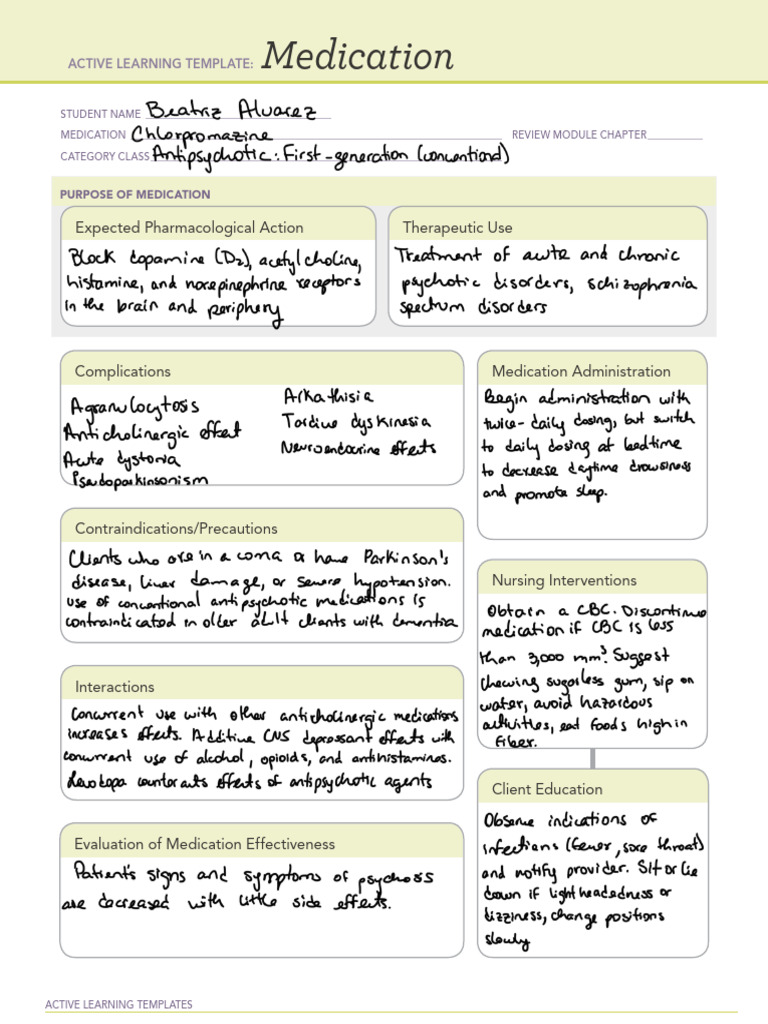 ACTIVE LEARNING TEMPLATE: Medication
STUDENT NAME Beatriz Alvarez
MEDICATION Chlorpromazine REVIEW MODULE CHAPTER
CATEGORY CLASS Antipsychotic: First-generation (conventional)
PURPOSE OF MEDICATION
Expected Pharmacological Action
Block dopamine (D2), acetylcholine,
histamine, and norepinephrine receptors
in the brain and periphery
Therapeutic Use
Treatment of acute and chronic
psychotic disorders, schizophrenia
spectrum disorders
Complications
Agranulocytosis
Anticholinergic effect
Acute dystonia
Pseudoparkinsonism
Arkathisia
Tardive dyskinesia
Neuroendocrine effects
Medication Administration
Begin administration with
twice-daily dosing, but switch
to daily dosing at bedtime
to decrease daytime drowsiness
and promote sleep.
Contraindications/Precautions
Clients who are in a coma or have Parkinson's
disease, liver damage, or severe hypotension.
use of conventional antipsychotic medications is
contraindicated in older adult clients with dementia
Nursing Interventions
Obtain a CBC. Discontinue
medication if CBC is less
than 3,000 mm³. Suggest
chewing sugarless gum, sip on
water, avoid hazardous
activities, eat foods high in
fiber.
Interactions
Concurrent use with other anticholinergic medications
increases effects. Additive CNS depressant effects with
concurrent use of alcohol, opioids, and antihistamines.
Levodopa counteracts effects of antipsychotic agents
Client Education
Observe indications of
infections (fever, sore throat)
and notify provider. Sit or lie
down if lightheadedness or
dizziness, change positions
slowly
Evaluation of Medication Effectiveness
Patient's signs and symptoms of psychosis
are decreased with little side effects.
ACTIVE LEARNING TEMPLATES